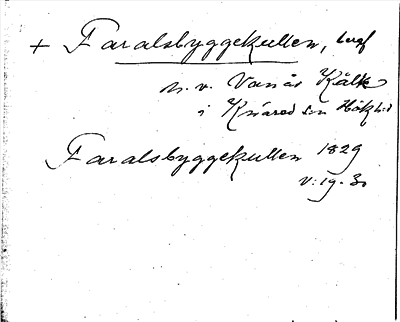 + Faralsbyggekullen, berg
n.v. Vanås Källe
i Knäred sn Höks hd
Faralsbyggekullen 1829
V: 19. 30